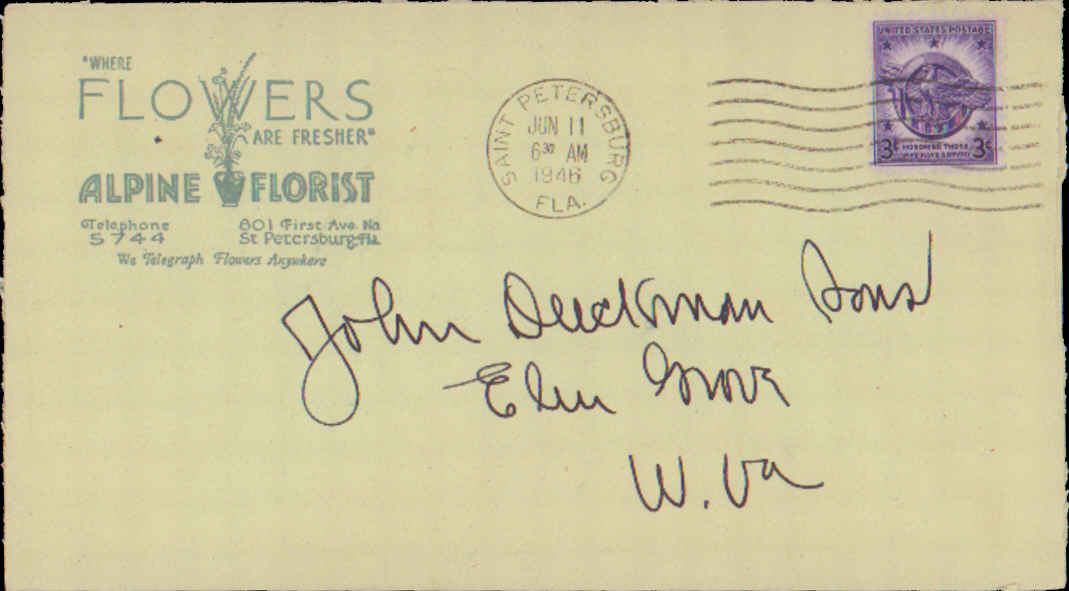 "WHERE
FLOWERS
ARE FRESHER"
ALPINE FLORIST
Telephone
5744
801 First Ave. No
St Petersburg-Fla.
We Telegraph Flowers Anywhere
SAINT PETERSBURG
JUN 11
6 30 AM
1946
FLA.
UNITED STATES POSTAGE
3¢ HONORING THOSE 3¢
WHO HAVE SERVED
John Dieckman Sons
Elm Grove
W. Va